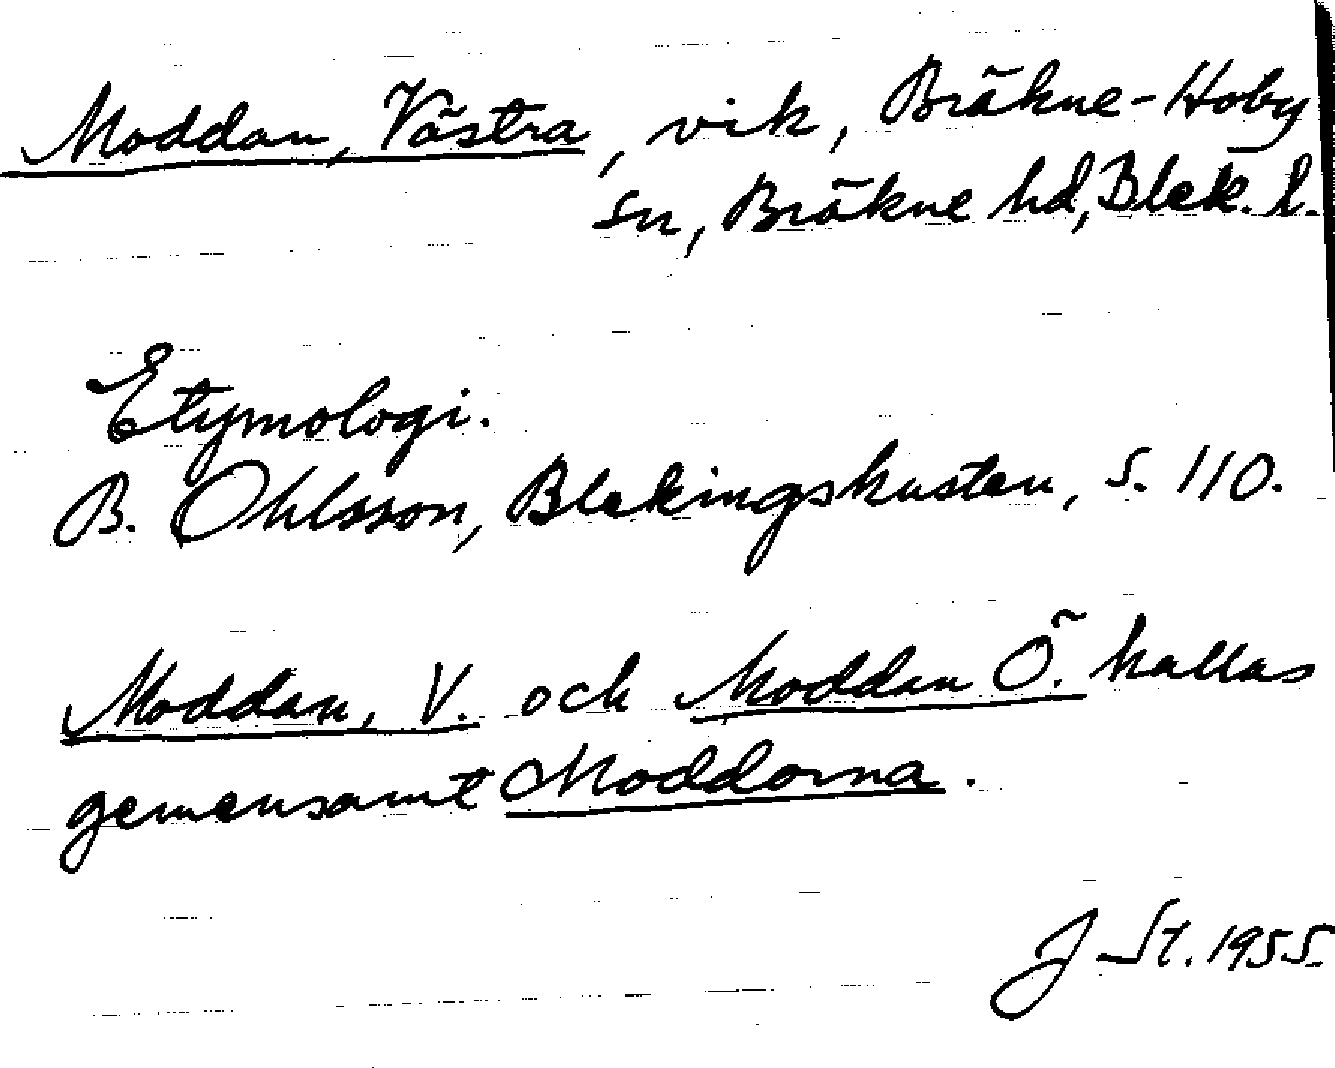 Moddan, Västra, vik, Bräkne-Hoby
sn, Bräkne hd, Blek. l.
Etymologi.
B. Ohlsson, Blekingskusten, s. 110.
Moddan, V. och Moddan Ö. kallas
gemensamt Moddorna.
J St. 1955.